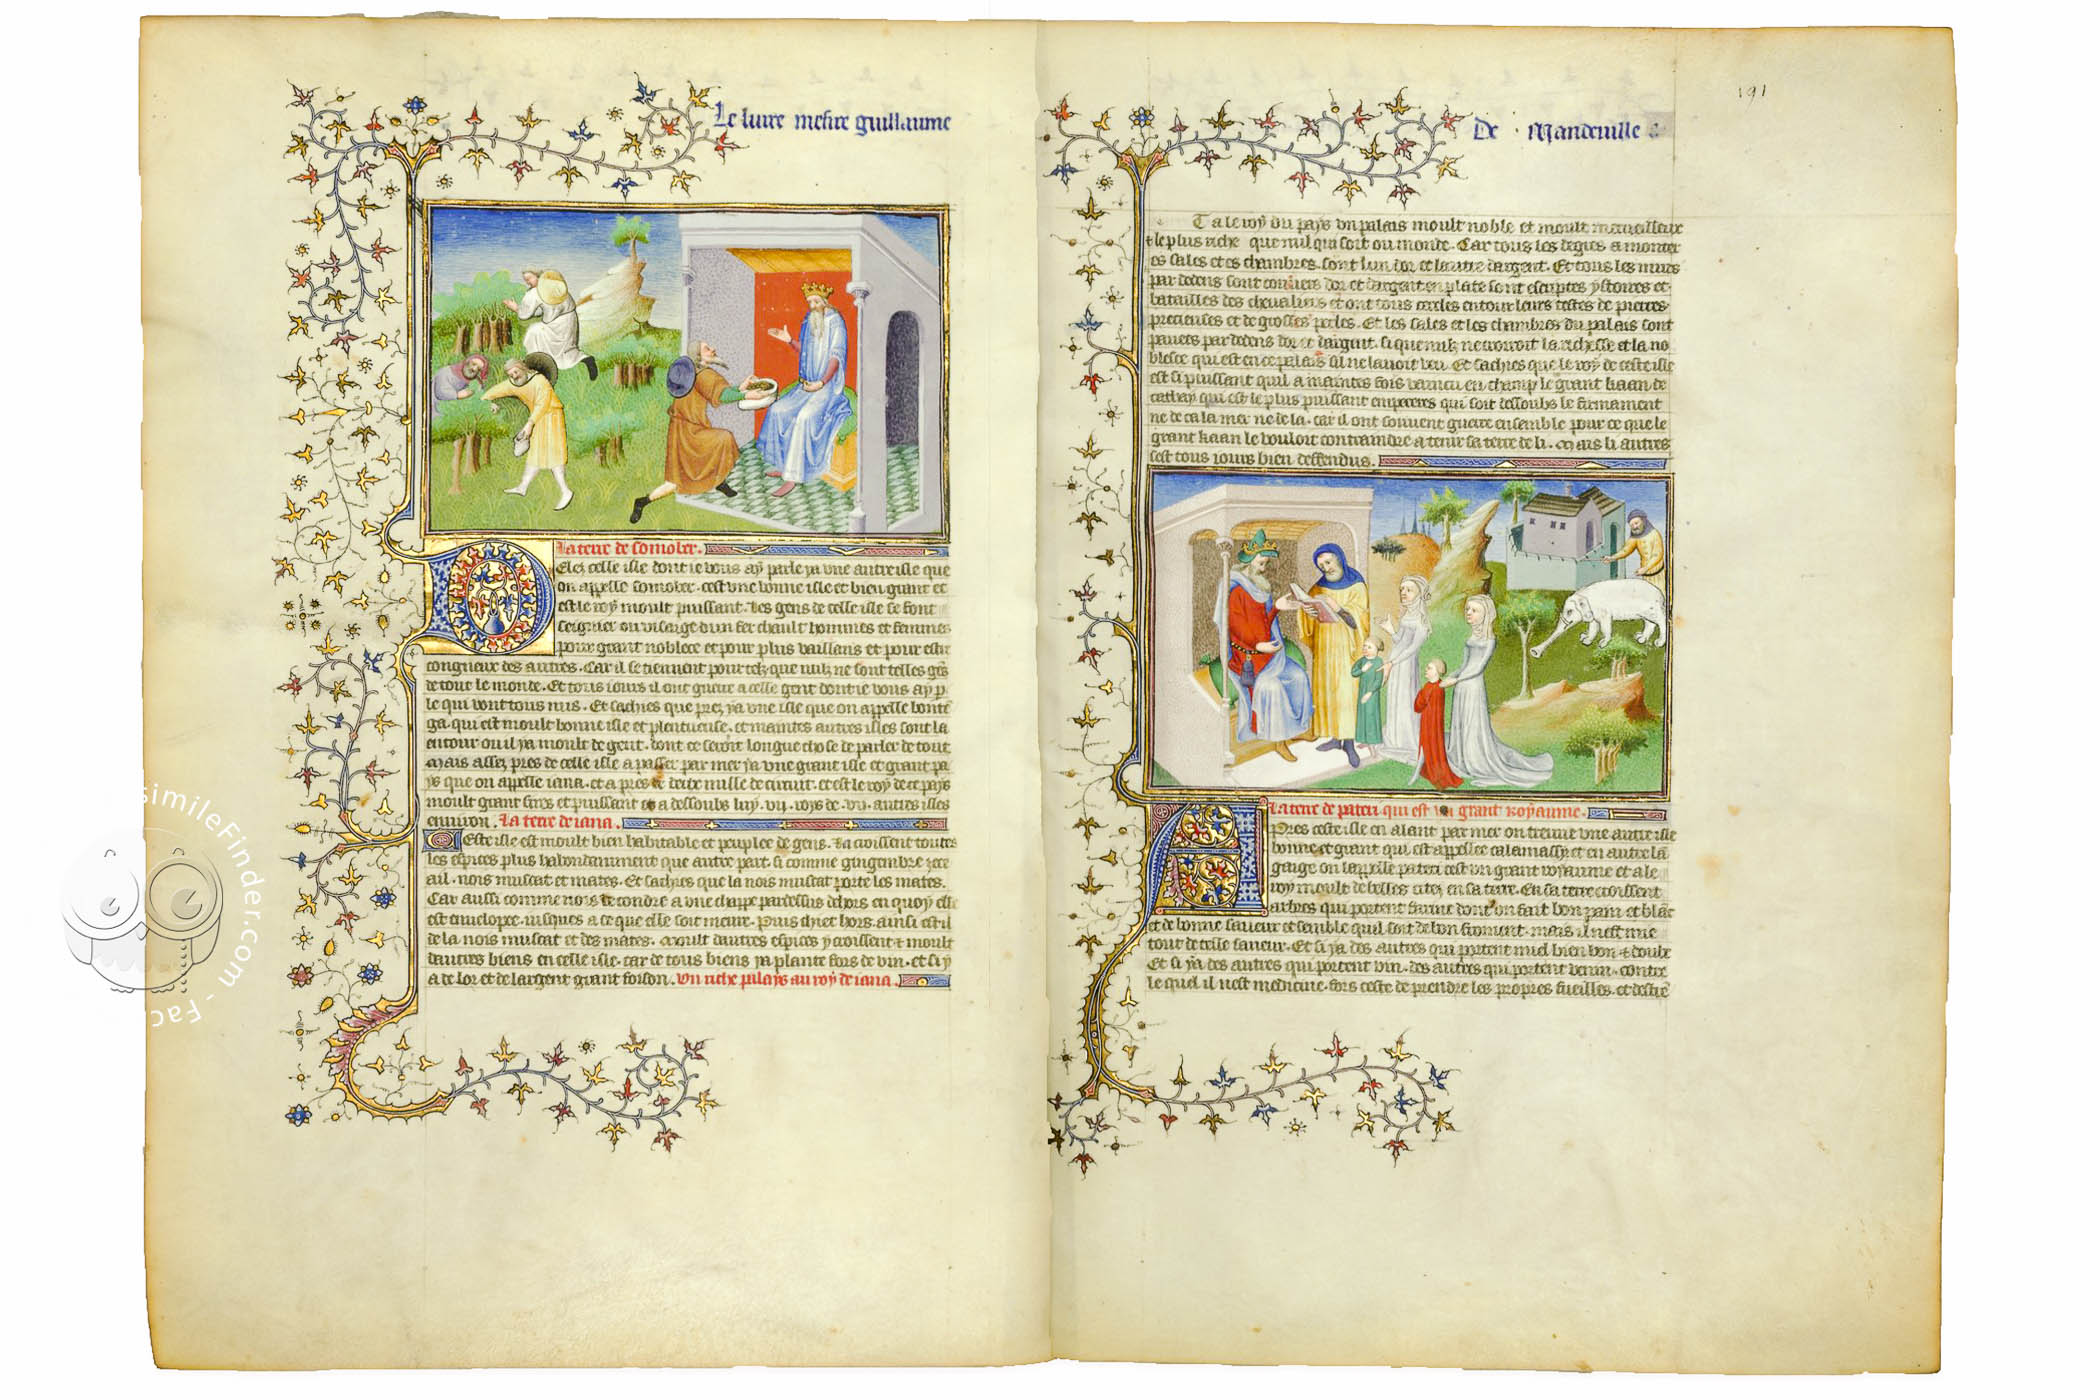 Le liure messire guillaume
La terre de somober.
Delez celle isle dont ie vous ay parle ya vne autre isle que
on appelle somober. cest vne bonne isle et bien grant et
est le roy moult puissant. Les gens de celle isle se font
seignier ou visaige dun fer chault hommes et femmes
pour grant noblece et pour plus vaillans et pour estre
congneuz des autres. Car il se tiennent pour telz que nulz ne sont telles gens
de tout le monde. Et tous iours il ont guerre a celle gent dont ie vous ay p
le qui vont tous nus. Et sachies que prez ya vne isle que on appelle
qui est moult bonne isle et plentueuse. et maintes autres isles sont la
entour ou il ya moult de gent. dont ce seroit longue chose de parler de tout
Mais assez pres de celle isle a passer par mer ya vne grant isle et grant pa
ys que on appelle iana. et a pres de deux mille de circuit. et est le roy de ce pays
moult grant sires et puissant et a dessoubs luy .vii. roys de .vii. autres isles
enuiron. La terre de iana.
Ceste isle est moult bien habitable et peuplee de gens. La croissent toutes
les espices plus habondanment que autre part si comme gingembre
nois muscat et mates. Et sachies que la nois muscat porte les mates.
Car aussi comme nois de condre a vne chappe par dessus dehors en quoy elle
est enuelopee. iusques a ce que elle soit meure. Puis chiet hors. ainsi est il
de la nois muscat et des mates. Moult dautres espices y croissent et moult
dautres biens en celle isle. car de tous biens ya plante fors de vin. et si y
a de lor et de largent grant foison. Un riche palays au roy de iana.
191
De Mandeuille
a le roy du pays vn palais moult noble et moult merueilleux
et le plus riche que nul qui soit ou monde. Car tous les degres a monter
es sales et es chambres sont lun dor et lautre dargent. Et tous les murs
par dedens sont couuers dor et dargent en plate sont escriptes ystoires et
batailles des cheualiers et ont tous cercles entour leurs testes de pierres
precieuses et de grosses perles. Et les sales et les chambres du palais sont
pauees par dedens dor et dargent. si que nulz ne croiroit la richesse et la no
blesce qui est en ce palais sil ne lauoit veu. Et sachies que le roy de ceste isle
est si puissant quil a maintes fois vaincu en champ le grant kaan de
cathay qui est le plus puissant empereres qui soit dessoubs le firmament
ne de ca la mer ne de la. car il ont souuent guerre ensemble pour ce que le
grant kaan le vouloit contraindre a tenir sa terre de li. Mais li autres
sest tous iours bien deffendus.
La terre de paten qui est vn grant royaume.
Apres ceste isle en alant par mer on treuue vne autre isle
bonne et grant qui est appellee calamassy et en autre la
gaige on lappelle paten cest vn grant royaume et a le
roy moult de belles citez en sa terre. En sa terre croissent
arbres qui portent farine dont on fait bon pain et blanc
et de bonne saueur et semble quil soit de bon froment. mais il nest mie
tout de telle saueur. Et si ya des autres qui portent miel bien bon et doulz
Et si ya des autres qui portent vin. des autres qui portent venin. contre
le quel il nest medicine. fors ceste de prendre les propres fueilles. et
simileFinder.com - Fac